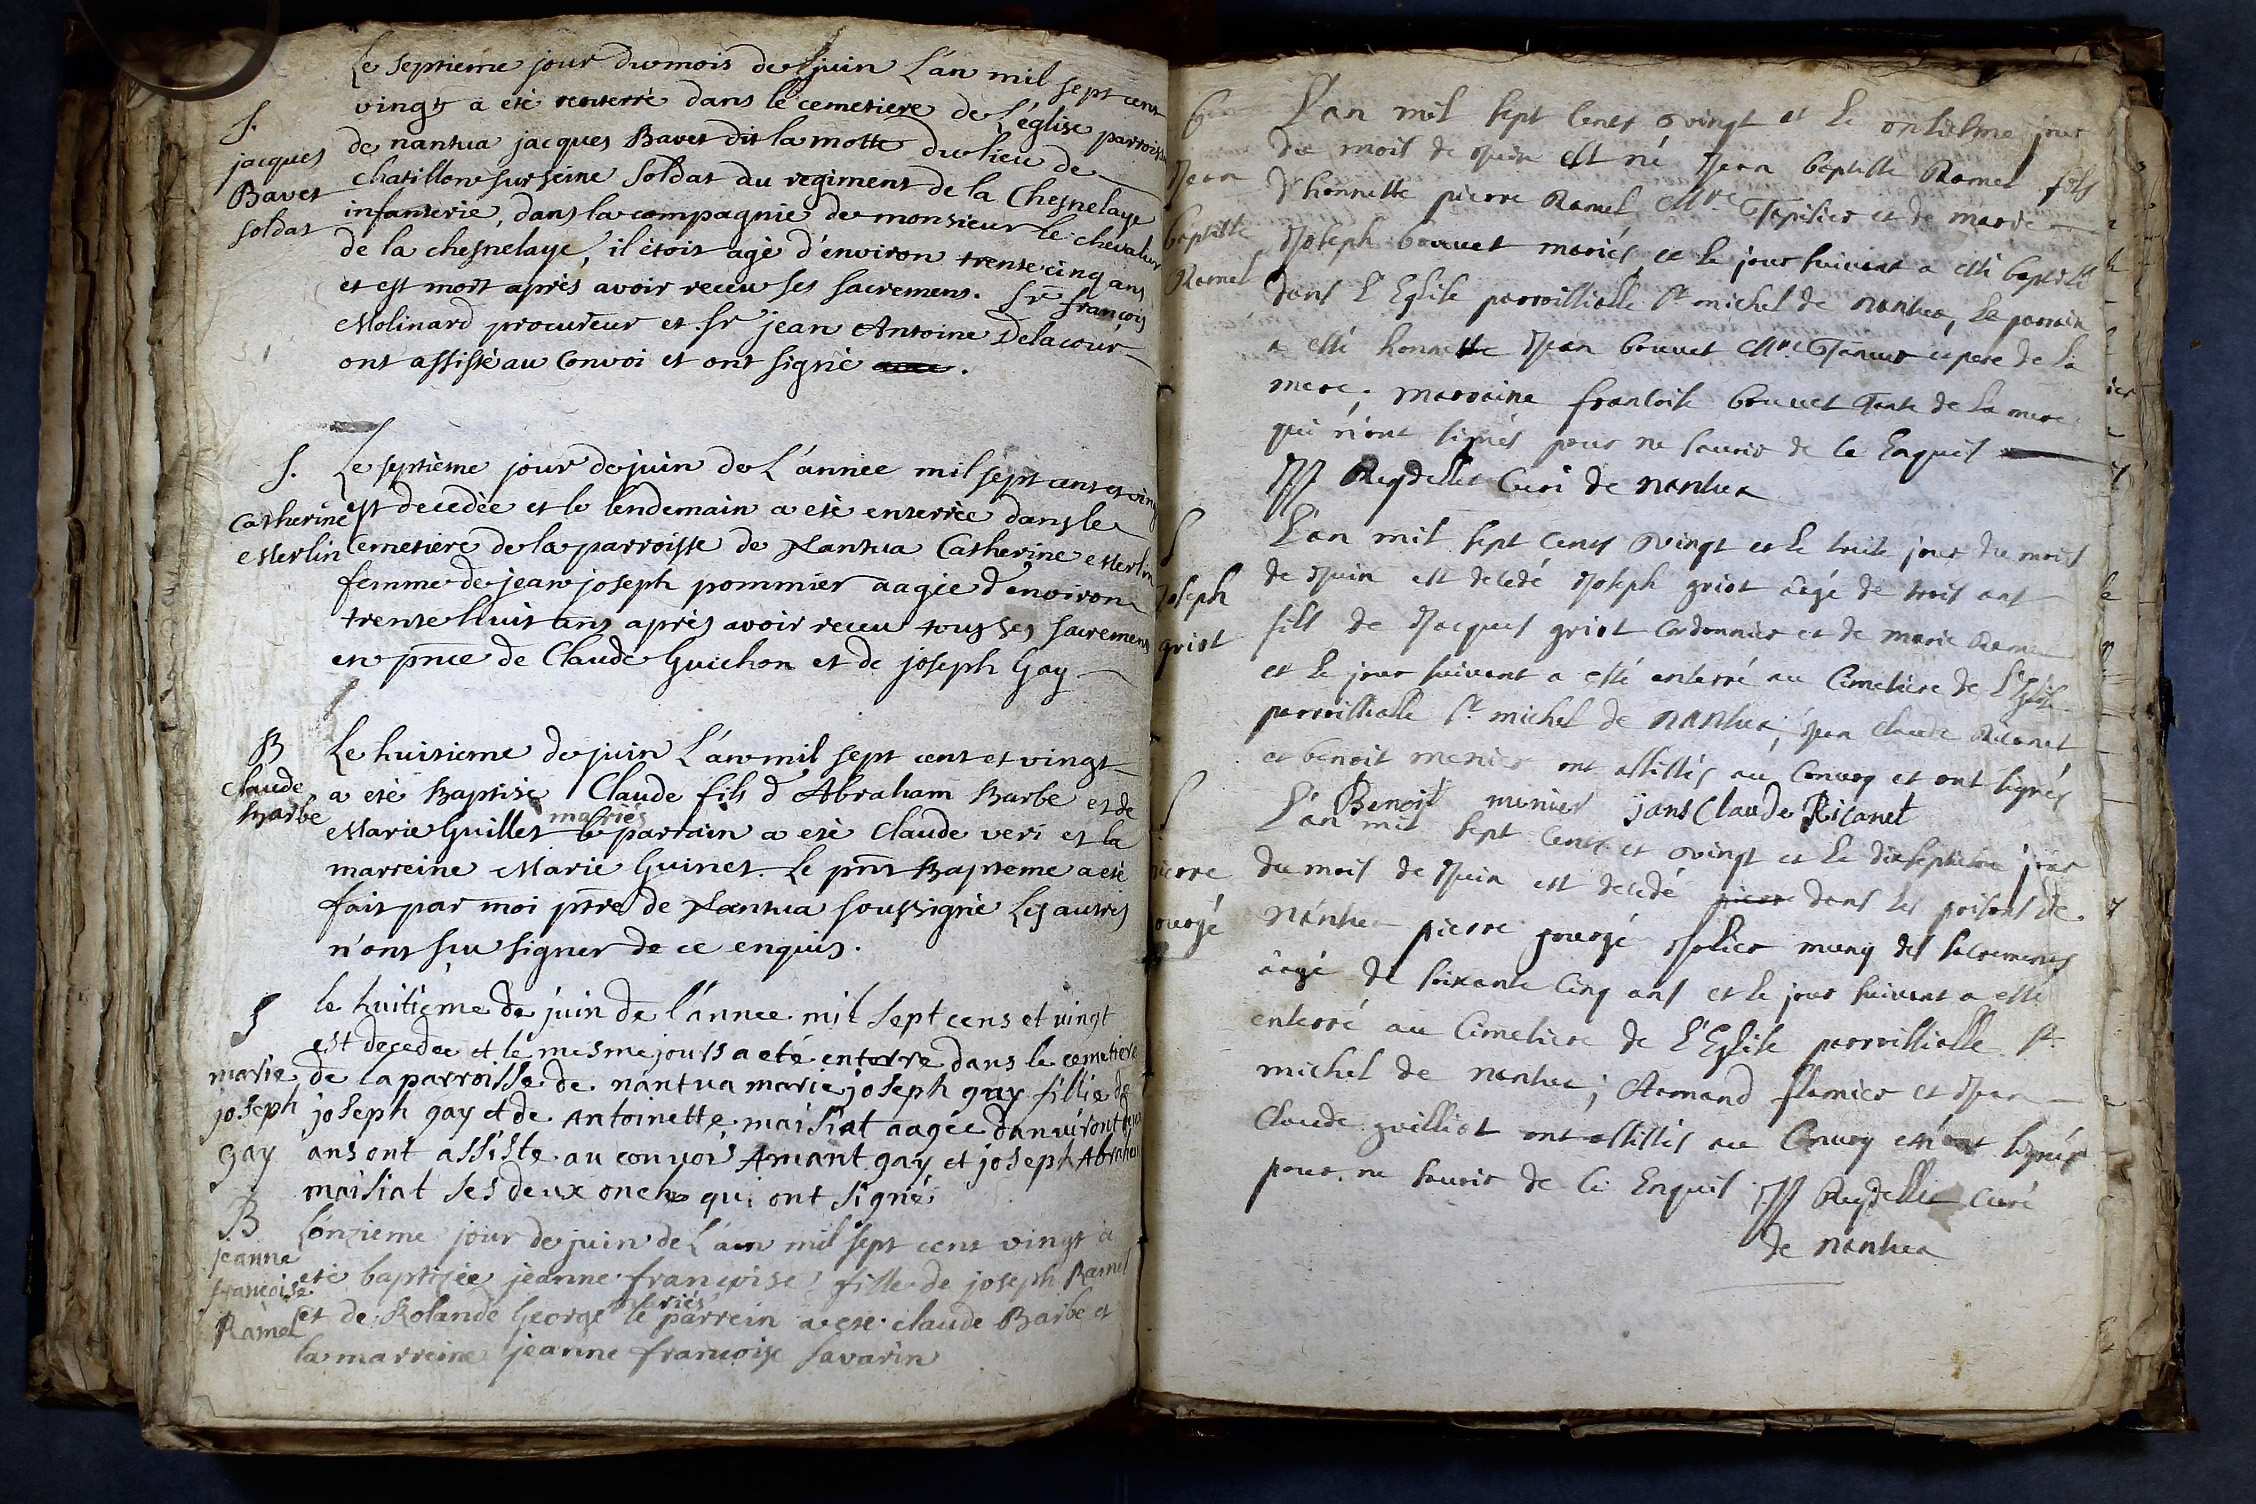 Le septieme jour du mois de juin L'an mil sept cent
vingt a eté renterré dans le cemetiere de L'église parroiss
S.
jacques
Bavet
soldat
de nantua jacques Bavet dit la motte du lieu de
chatillon sur seine soldat du regiment de la Chesnelaye
infanterie, dans la compagnie de monsieur le chevalier
de la chesnelaye, il étoit agé d'environ trente cinq ans
et est mort après avoir receu ses sacremens. Sr françois
Molinard procureur et sr jean Antoine Delacour
ont assisté au Convoi et ont signé
S.
Catherine
Merlin
Le septième jour de juin de L'année mil sept cent et vingt
est decedée et le lendemain a eté enterrée dans le
Cemetiere de la parroisse de Nantua Catherine Merlin
femme de jean joseph pommier aagée d'environ
trente huit ans après avoir receu tous ses sacremens
en pnce de Claude Guichon et de joseph Gay
B
Claude
Barbe
Le huitieme de juin L'an mil sept cent et vingt
a eté Baptisé Claude fils d'Abraham Barbe et de
Marie Guillet mariés le parrain a eté Claude veri et la
marreine Marie Guinet. Le pnt Bapteme a eté
fait par moi ptre de Nantua soussigné Les autres
n'ont sçu signer de ce enquis.
S
marie
joseph
gay
le huitième de juin de l'année mil sept cens et vingt
est decedee et le mesme jours a eté enterre dans le cemetiere
de la parroisse de nantua marie joseph gay fillie de
joseph gay et de Antoinette maisiat aagée danuiront deux
ans ont assiste au convoi Amant gay et joseph Abraham
maisiat ses deux oncles qui ont signé
B
jeanne
françoise
Ramel
L'onzieme jour de juin de L'an mil sept cent vingt a
eté baptisée jeanne françoise fille de joseph Ramel
et de Rolande George mariés le parrein a eté claude Barbe et
la marreine jeanne françoise savarin
Jean
baptiste
Ramel
L'an mil sept Cents vingt et le onsiesme jour
du mois de Juin est né Jean baptiste Ramel fils
d'honnette pierre Ramel Mre Tapisier et de marie
Joseph bouuet mariés, et le jour suivant a esté baptisé
dans L'Eglise parroissialle St michel de nantua, le parrain
a esté honnette Jean bouuet Mre Taneur père de la
mere; marraine francoise bouuet Tante de la mere
qui n'ont signés pour ne sauoir de ce Enquis
JJ Reydellet Curé de nantua
S
Joseph
griot
L'an mil sept Cents vingt et le treise jour du mois
de Juin est decedé Joseph griot âagé de trois ans
fils de Jacques griot Cordonnier et de marie Rame
et le jour suivant a esté enterré au Cimetiere de L'Eglise
parroissialle St michel de nantua; Jean Claude Ricanet
et benoit menier ont assistés au Convoy et ont signés
Benoit munier jans Claude Ricanet
S
pierre
gourgé
L'an mil sept Cents et vingt et le dixseptiesme jour
du mois de Juin est decedé pierre dans les prisons de
Nantua pierre gourgé Jolier muny des sacrements
âagé de soixante Cinq ans et le jour suivant a esté
enterré au Cimetiere de L'Eglise parroissialle St
michel de nantua; Armand flamier et Jean
Claude guilliot ont assistés au Convoy et n'ont signés
pour ne sauoir de Ce Enquis JJ Reydellet Curé
de nantua